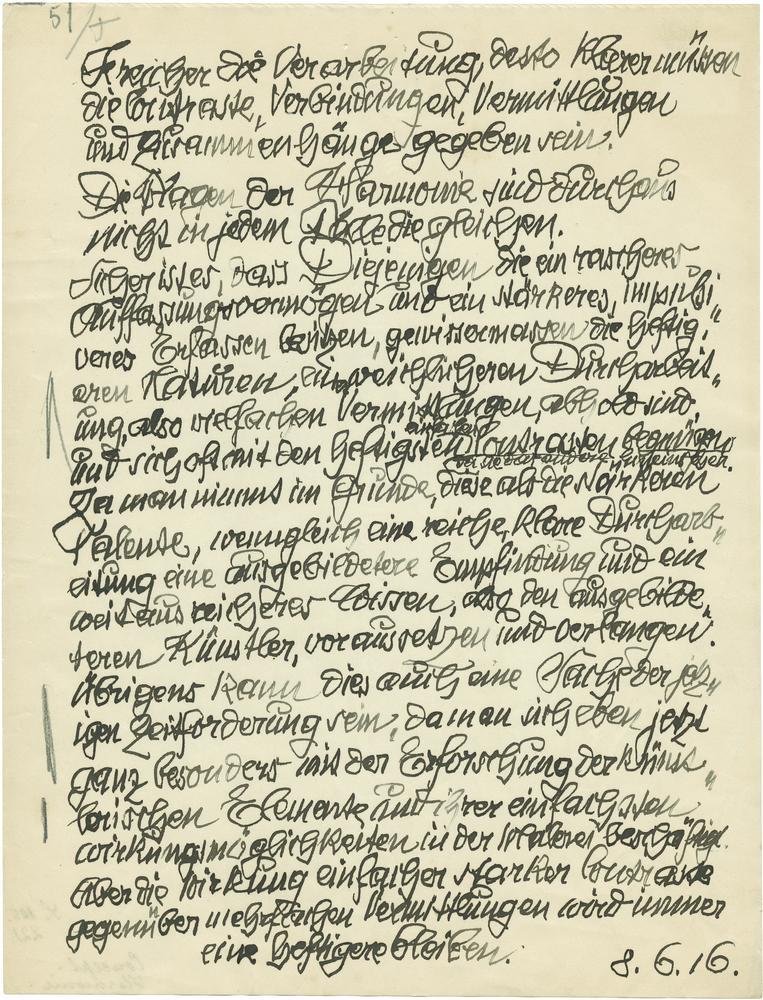 51/I
Je reicher die Verarbeitung, desto klarer müssen
die Contraste, Verbindungen, Vermittlungen
und Zusammenhänge gegeben sein.
Die Fragen der Harmonie sind durchaus
nicht in jedem Falle die gleichen.
Sicher ist es, dass Diejenigen die ein rascheres
Auffassungsvermögen und ein stärkeres, impulsi„
veres Erfassen besitzen, gewissermassen die heftig„
eren Naturen, ein weichlicheren Durcharbeit„
ung, also vielfachen Vermittlungen, abhold sind,
und sich oft mit den heftigsten einfachsten Contrasten begnügen
Ja man nimmt im Grunde, diese als die stärkeren
Talente, wenngleich eine reiche, klare Durcharb„
eitung eine ausgebildetere Empfindung und ein
weitaus reicheres Wissen, also den ausgebilde„
teren Künstler, voraussetzen und verlangen.
Übrigens kann dies auch eine Sache der jetz„
igen Zeitforderung sein, da man sich eben jetzt
ganz besonders mit der Erforschung der künst„
lerischen Elemente und ihrer einfachsten
Wirkungsmöglichkeiten in der Malerei beschäftigt.
Aber die Wirkung einfacher starker Contraste
gegenüber mehrfachen Vermittlungen wird immer
eine heftigere bleiben.
8.6.16.